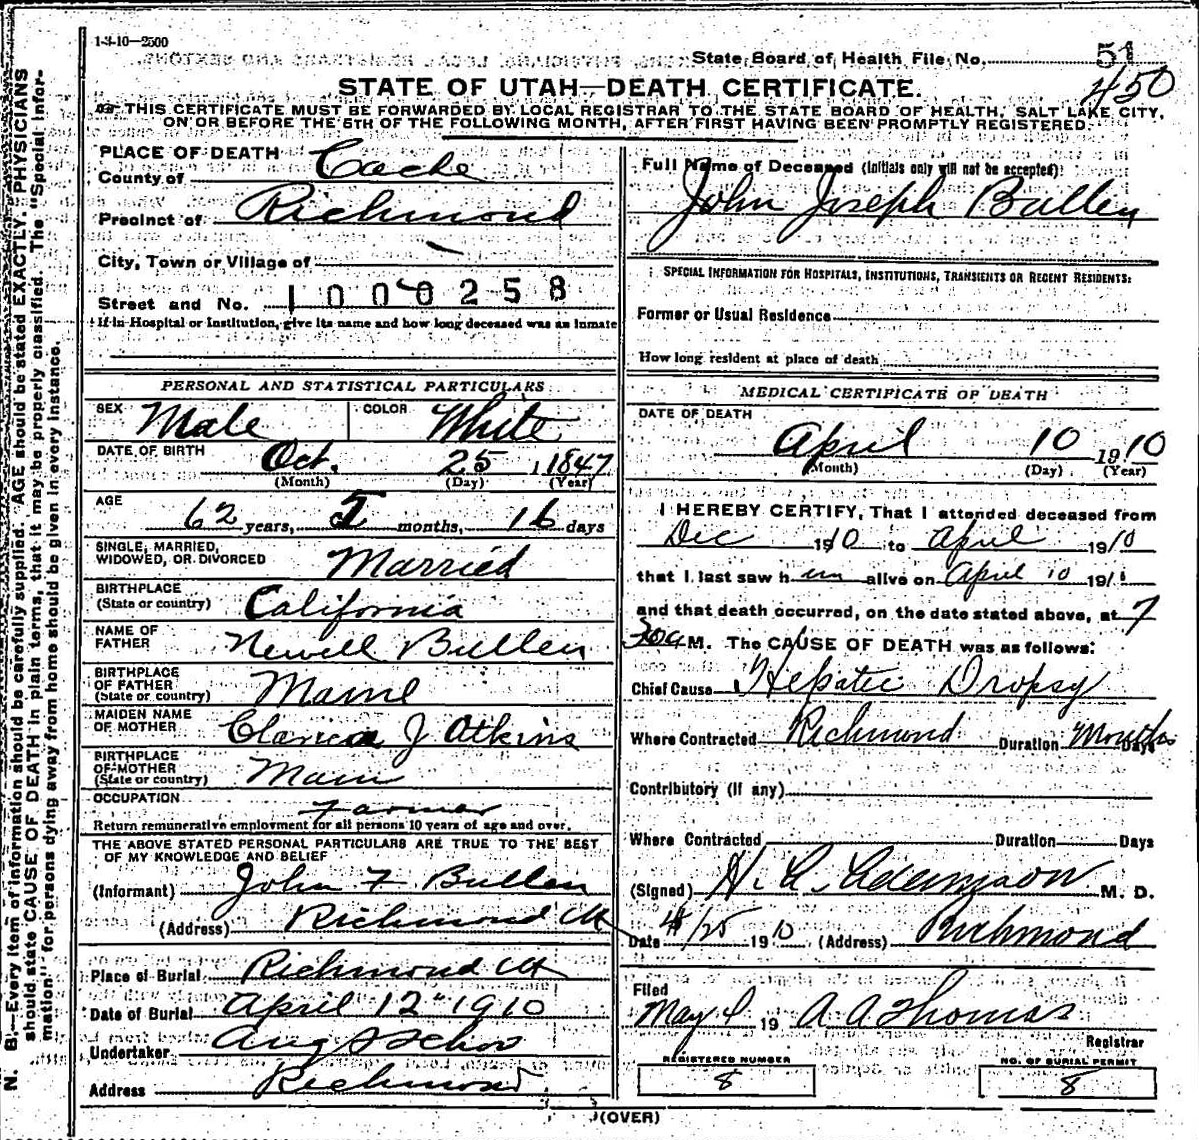 1-3-10—2500
State Board of Health File No. 51
450
STATE OF UTAH—DEATH CERTIFICATE.
THIS CERTIFICATE MUST BE FORWARDED BY LOCAL REGISTRAR TO THE STATE BOARD OF HEALTH, SALT LAKE CITY,
ON OR BEFORE THE 5TH OF THE FOLLOWING MONTH, AFTER FIRST HAVING BEEN PROMPTLY REGISTERED.
N. B.—Every item of information should be carefully supplied. AGE should be stated EXACTLY. PHYSICIANS
should state CAUSE OF DEATH in plain terms, that it may be properly classified. The "Special Infor-
mation" for persons dying away from home should be given in every instance.
PLACE OF DEATH
County of Cache
Precinct of Richmond
City, Town or Village of —
Street and No. 1000258
If in Hospital or Institution, give its name and how long deceased was an inmate
PERSONAL AND STATISTICAL PARTICULARS
SEX Male COLOR White
DATE OF BIRTH Oct. 25, 1847
(Month) (Day) (Year)
AGE 62 years, 5 months, 16 days
SINGLE, MARRIED,
WIDOWED, OR DIVORCED Married
BIRTHPLACE
(State or country) California
NAME OF
FATHER Newell Bullen
BIRTHPLACE
OF FATHER
(State or country) Maine
MAIDEN NAME
OF MOTHER Clarica J Atkins
BIRTHPLACE
OF MOTHER
(State or country) Main
OCCUPATION Farmer
Return remunerative employment for all persons 10 years of age and over.
THE ABOVE STATED PERSONAL PARTICULARS ARE TRUE TO THE BEST
OF MY KNOWLEDGE AND BELIEF
(Informant) John F Bullen
(Address) Richmond Ut
Place of Burial Richmond Ut
Date of Burial April 12" 1910
Undertaker Aug
Address Richmond
Full Name of Deceased (Initials only will not be accepted):
John Joseph Bullen
SPECIAL INFORMATION FOR HOSPITALS, INSTITUTIONS, TRANSIENTS OR RECENT RESIDENTS:
Former or Usual Residence
How long resident at place of death
MEDICAL CERTIFICATE OF DEATH
DATE OF DEATH
April 10 1910
(Month) (Day) (Year)
I HEREBY CERTIFY, That I attended deceased from
Dec 1910 to April 1910
that I last saw him alive on April 10 191
and that death occurred, on the date stated above, at 7
30 a M. The CAUSE OF DEATH was as follows:
Chief Cause Hepatic Dropsy
Where Contracted Richmond Duration Months Days
Contributory (if any)
Where Contracted Duration Days
(Signed) Adamson M. D.
Date 4/25 1910 (Address) Richmond
Filed
May 19 A A Thomas
Registrar
REGISTERED NUMBER
8
NO. OF BURIAL PERMIT
8
(OVER)